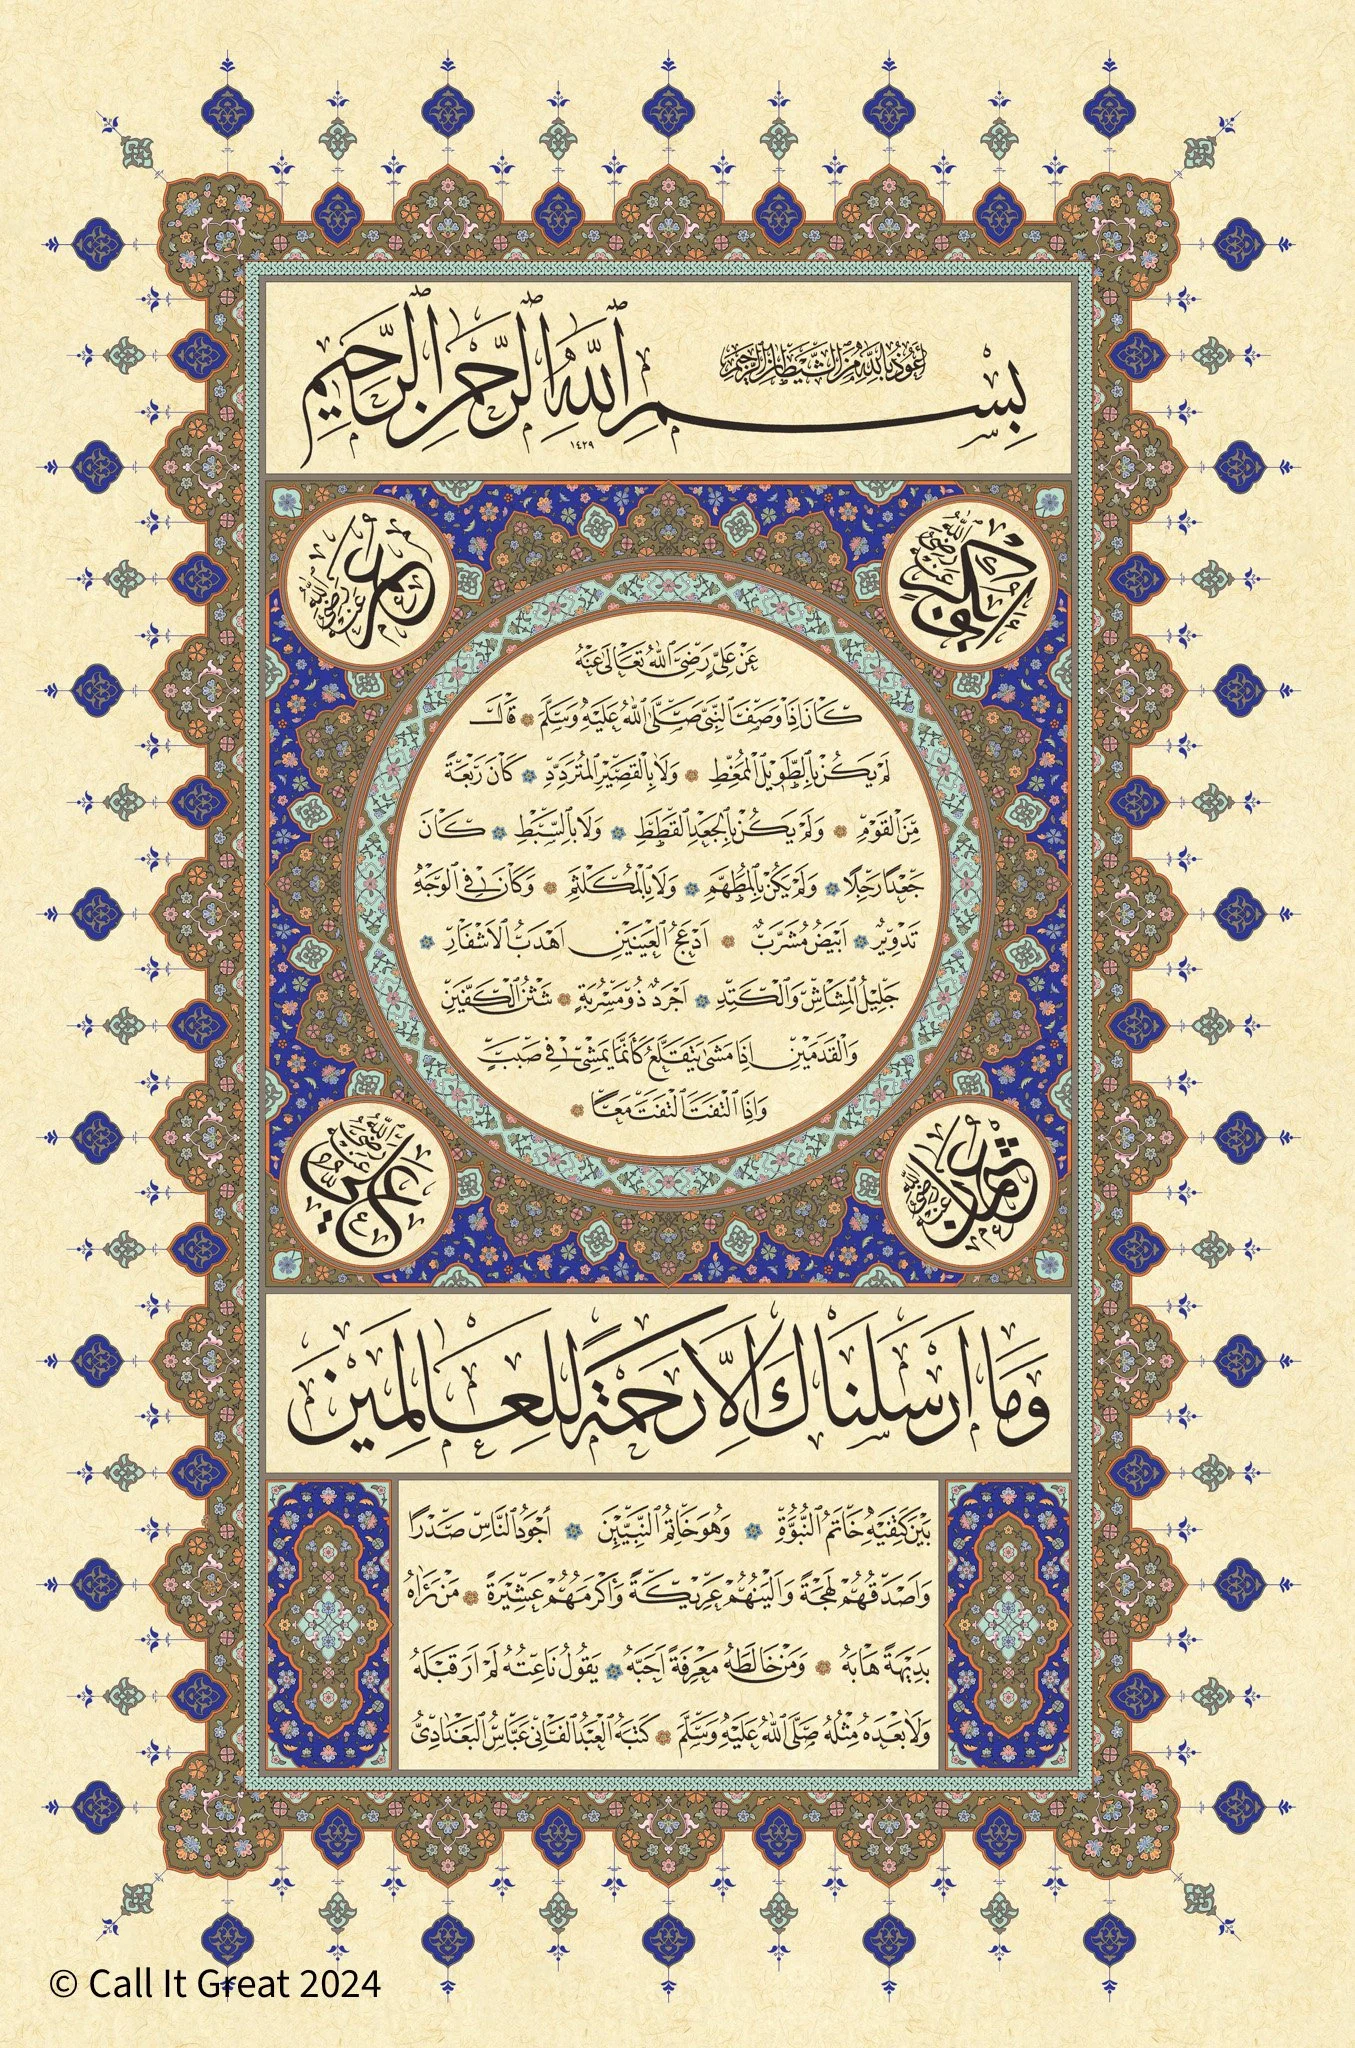 أعوذ بالله من الشيطان الرجيم
بِسْمِ اللَّهِ الرَّحْمَنِ الرَّحِيمِ
١٤٢٩
أبو بكر رضي الله عنه
عمر رضي الله عنه
عَنْ عَلِيٍّ رَضِيَ اللهُ تَعَالَى عَنْهُ
كَانَ اِذَا وَصَفَ النَّبِيَّ صَلَّى اللهُ عَلَيْهِ وَسَلَّمَ قَالَ
لَمْ يَكُنْ بِالطَّوِيلِ الْمُمَّغِطِ وَلَا بِالْقَصِيرِ الْمُتَرَدِّدِ كَانَ رَبْعَةً
مِنَ الْقَوْمِ وَلَمْ يَكُنْ بِالْجَعْدِ الْقَطَطِ وَلَا بِالسَّبْطِ كَانَ
جَعْدًا رَجِلًا وَلَمْ يَكُنْ بِالْمُطَهَّمِ وَلَا بِالْمُكَلْثَمِ وَكَانَ فِي الْوَجْهِ
تَدْوِيرٌ اَبْيَضُ مُشْرَبٌ اَدْعَجُ الْعَيْنَيْنِ اَهْدَبُ الْاَشْفَارِ
جَلِيلُ الْمُشَاشِ وَالْكَتَدِ اَجْرَدُ ذُو مَسْرُبَةٍ شَثْنُ الْكَفَّيْنِ
وَالْقَدَمَيْنِ اِذَا مَشَى يَتَقَلَّعُ كَاَنَّمَا يَمْشِي فِي صَبَبٍ
وَاِذَا الْتَفَتَ الْتَفَتَ مَعًا
عثمان رضي الله عنه
علي رضي الله عنه
وَمَا اَرْسَلْنَاكَ اِلَّا رَحْمَةً لِلْعَالَمِينَ
بَيْنَ كَتِفَيْهِ خَاتَمُ النُّبُوَّةِ وَهُوَ خَاتَمُ النَّبِيِّينَ اَجْوَدُ النَّاسِ صَدْرًا
وَاَصْدَقُهُمْ لَهْجَةً وَاَلْيَنُهُمْ عَرِيكَةً وَاَكْرَمُهُمْ عَشِيرَةً مَنْ رَآهُ
بَدِيهَةً هَابَهُ وَمَنْ خَالَطَهُ مَعْرِفَةً اَحَبَّهُ يَقُولُ نَاعِتُهُ لَمْ اَرَ قَبْلَهُ
وَلَا بَعْدَهُ مِثْلَهُ صَلَّى اللهُ عَلَيْهِ وَسَلَّمَ كَتَبَهُ الْعَبْدُ الْفَانِي عَبَّاسُ الْبَغْدَادِيُّ
© Call It Great 2024